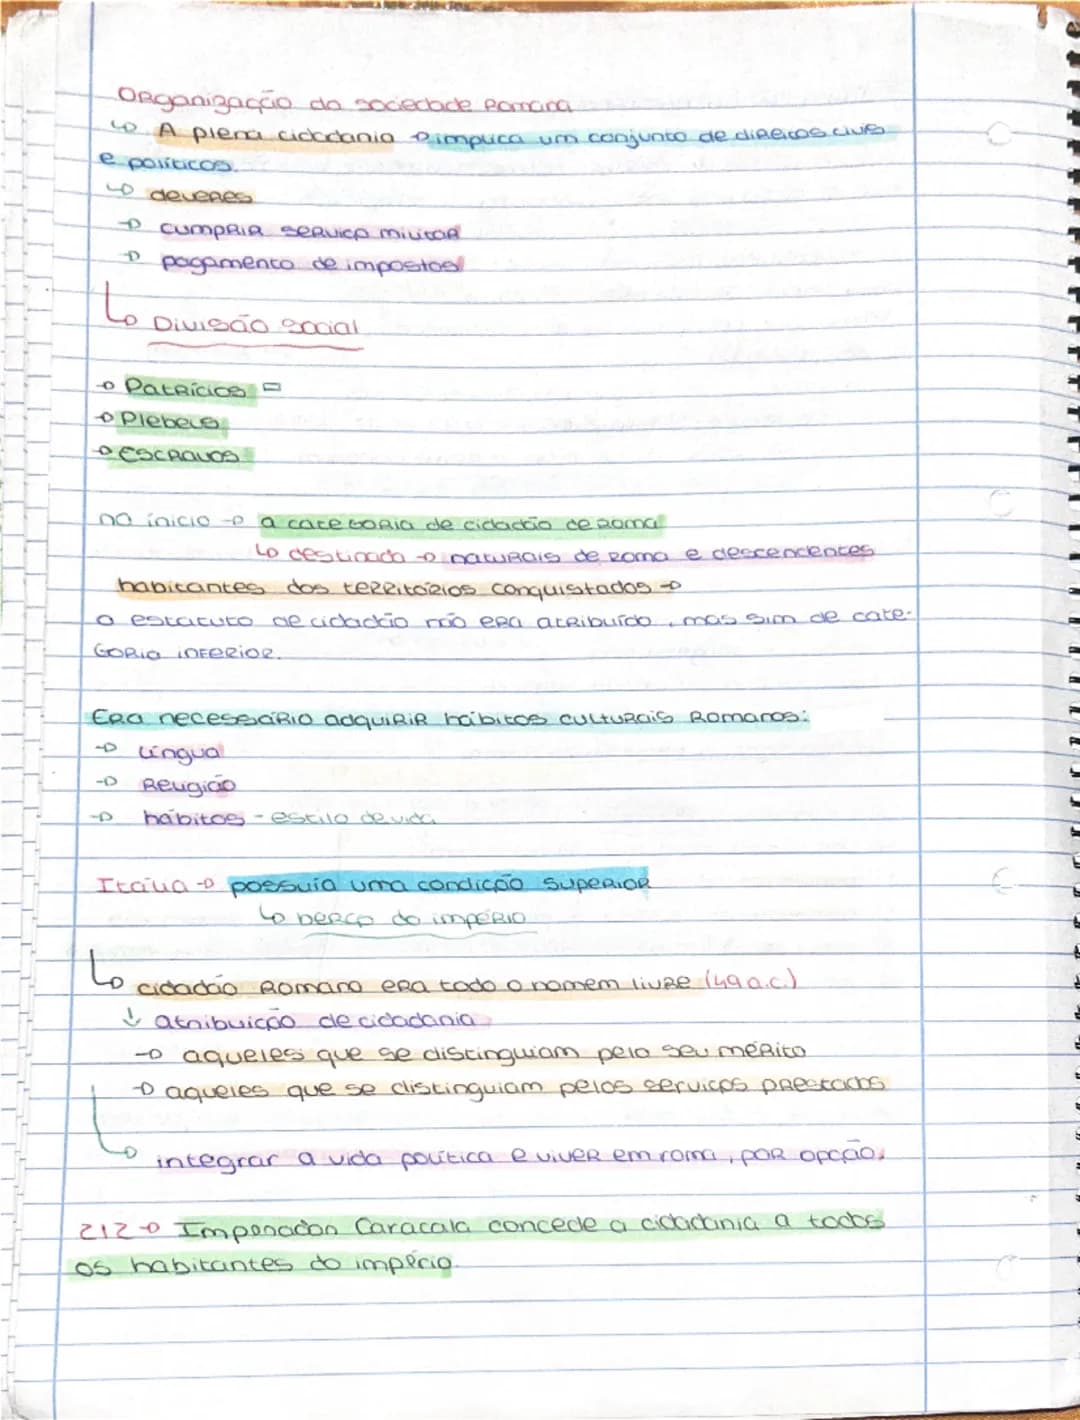 Organização da sociedade Romana
↳ A plena cidadania → implica um conjunto de direitos civis
e políticos.
↳ deveres
→ cumprir serviço militar
→ pagamento de impostos
↳ Divisão social
→ Patrícios =
→ Plebeus
→ Escravos
no ínicio → a categoria de cidadão de Roma
↳ destinada → naturais de Roma e descendentes
habitantes dos territórios conquistados →
o estatuto de cidadão não era atribuído, mas sim de cate-
goria inferior.
Era necessário adquirir hábitos culturais Romanos:
→ Língua
→ Religião
→ hábitos - estilo de vida
Itália → possuía uma condição superior
↳ berço do império
↳ cidadão Romano era todo o homem livre (49 a.c.)
↓ atribuição de cidadania
→ aqueles que se distinguiam pelo seu mérito
→ aqueles que se distinguiam pelos serviços prestados
↳ integrar a vida política e viver em roma, por opção.
212 → Imperador Caracala concede a cidadania a todos
os habitantes do império.